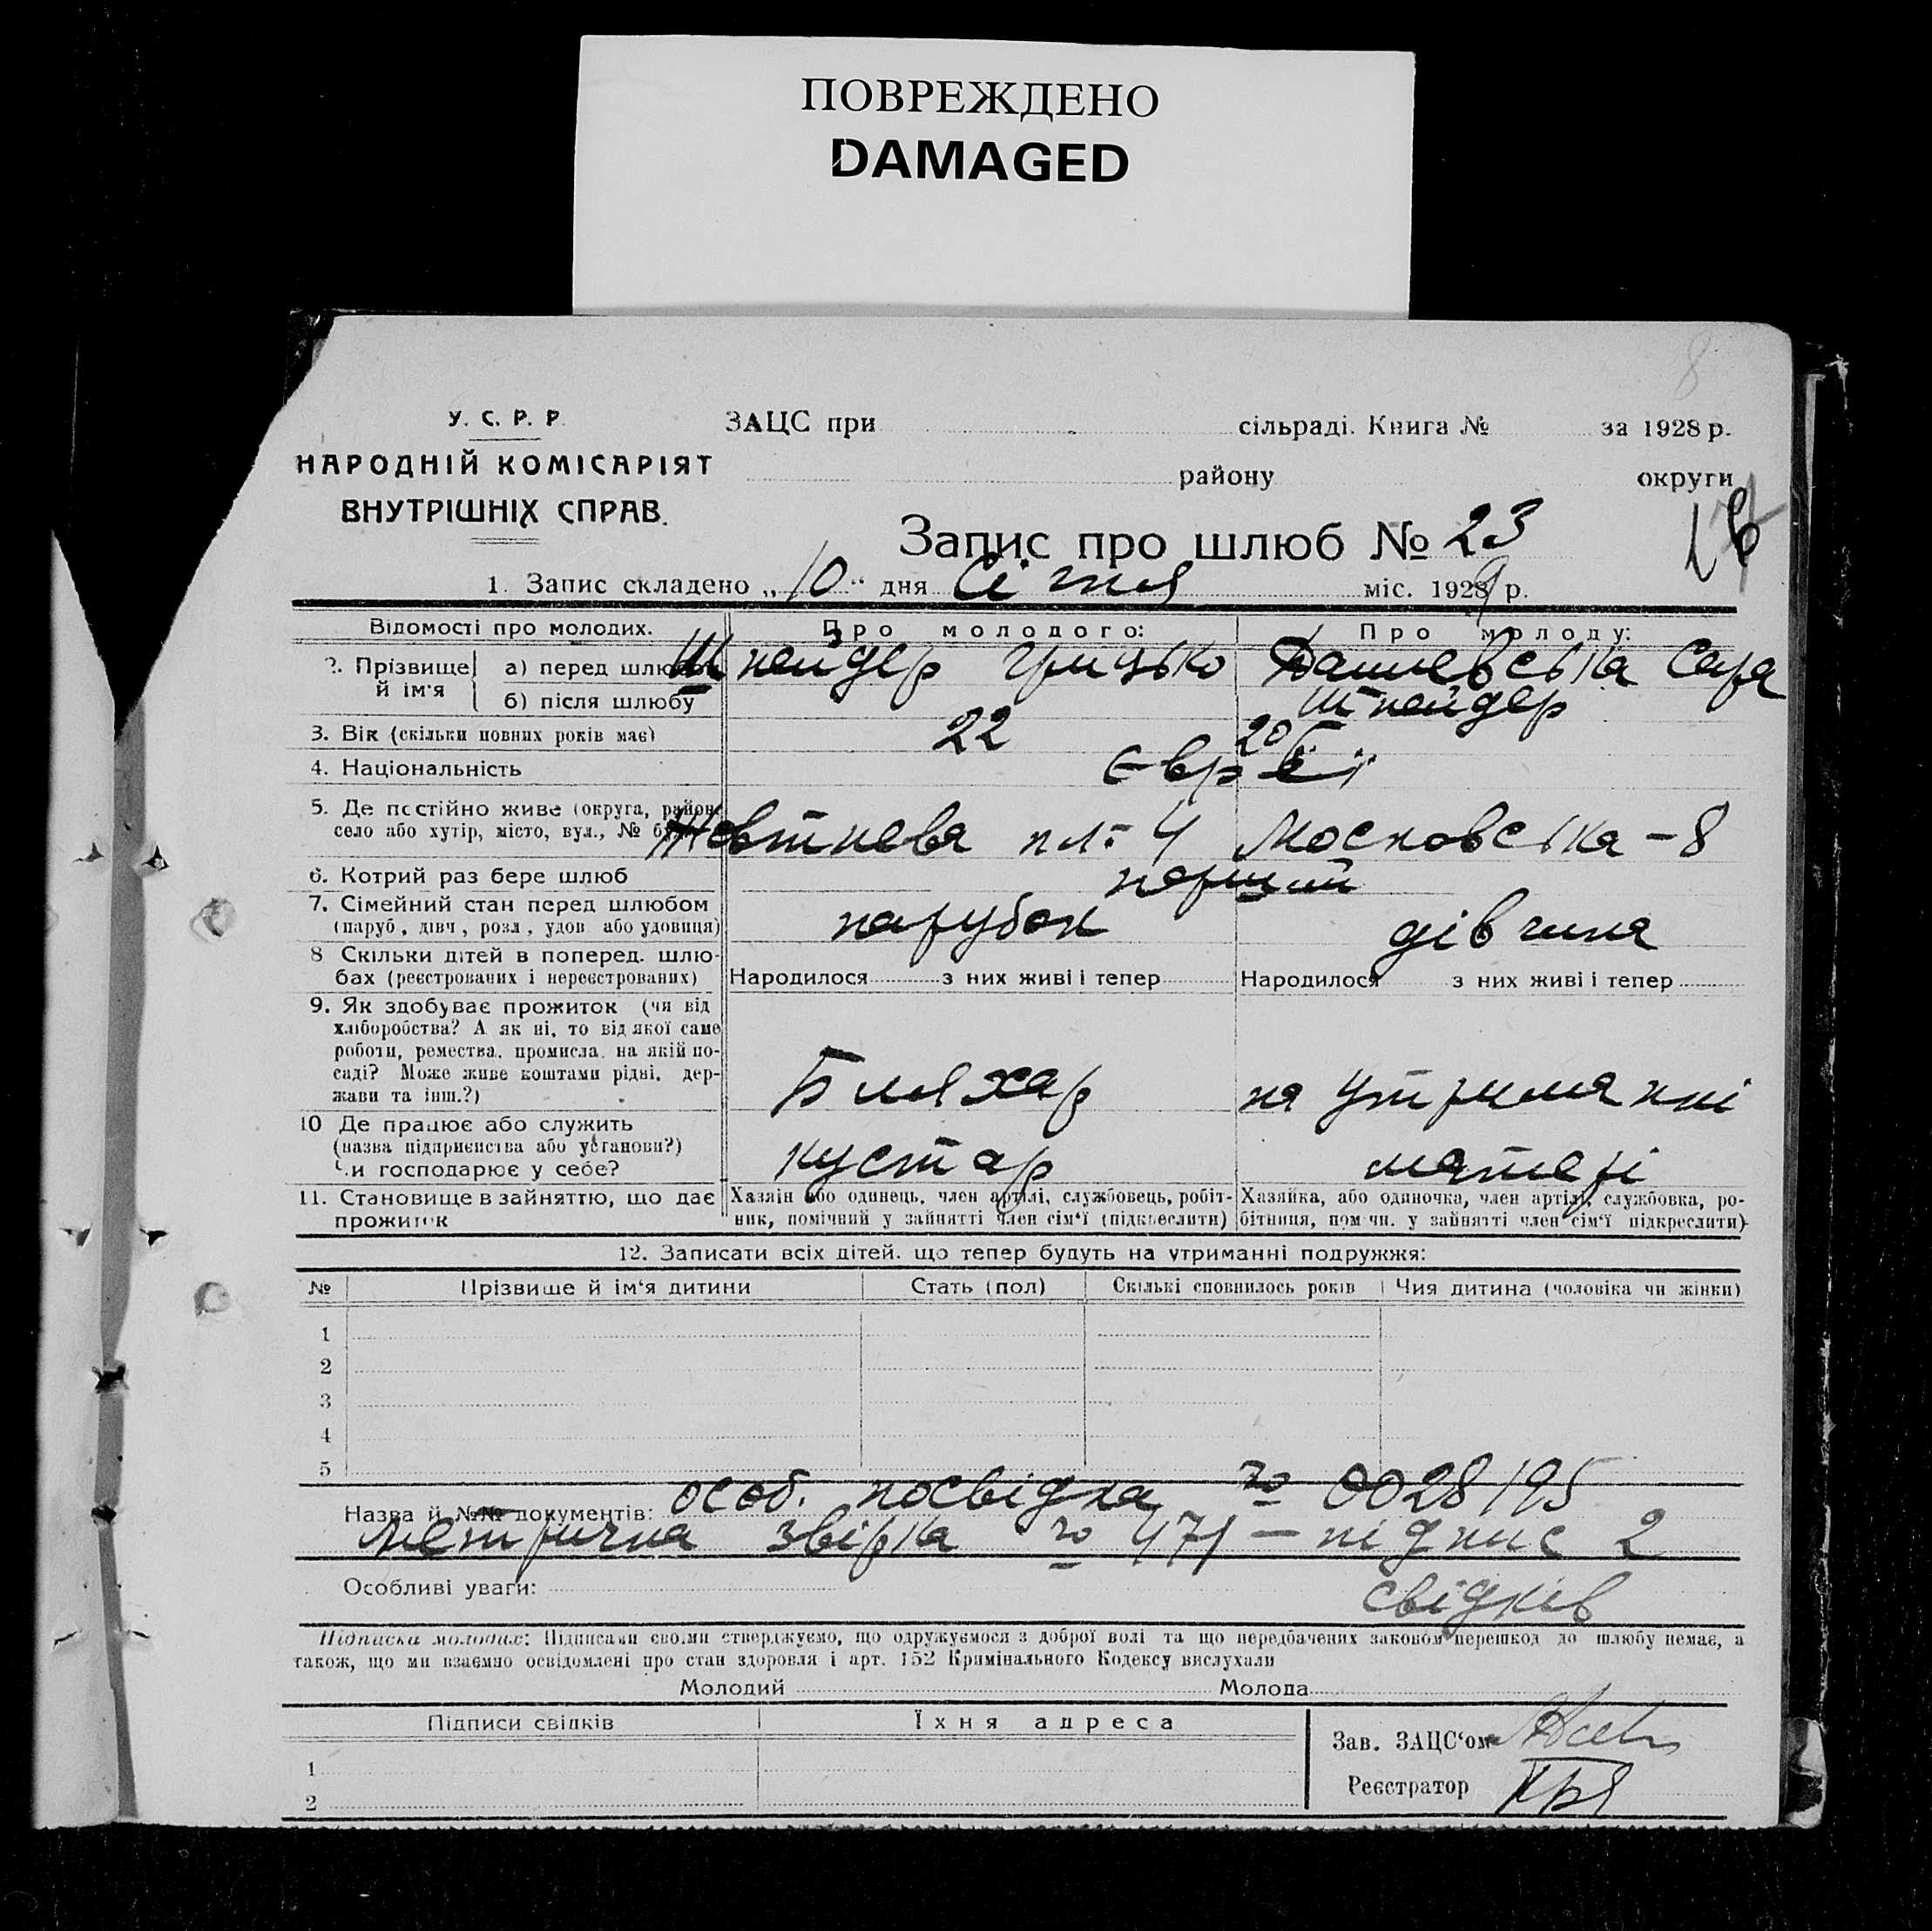 ПОВРЕЖДЕНО
DAMAGED
8
У. С. Р. Р.
НАРОДНІЙ КОМІСАРІЯТ
ВНУТРІШНІХ СПРАВ.
ЗАЦС при сільраді. Книга № за 1928 р.
району округи
Запис про шлюб № 23
1. Запис складено „10“ дня Січня міс. 1929 р.
Відомості про молодих. Про молодого: Про молоду:
2. Прізвище й ім'я а) перед шлюбом Шнейдер Грицько Дашевська Сара
б) після шлюбу Шнейдер
3. Вік (скільки повних років має) 22 20
4. Національність Євреї
5. Де постійно живе (округа, район, село або хутір, місто, вул., № буд. Жовтнева пл. 4 Московська - 8
6. Котрий раз бере шлюб перший
7. Сімейний стан перед шлюбом парубок дівчина
(паруб., дівч., розл., удов. або удовиця)
8 Скільки дітей в поперед. шлю-
бах (реєстрованих і нереєстрованих) Народилося з них живі і тепер Народилося з них живі і тепер
9. Як здобуває прожиток (чи від
хліборобства? А як ні, то від якої саме
роботи, ремества, промисла, на якій по-
саді? Може живе коштами рідні, дер-
жави та інш.?) Бляхар на утриманні
10 Де працює або служить
(назва підприємства або установи?)
Чи господарює у себе? кустар матері
11. Становище в зайняттю, що дає Хазяін або одинець, член артілі, службовець, робіт- Хазяйка, або одиночка, член артілі, службовка, ро-
прожиток ник, помічний у зайнятті член сім'ї (підкреслити) бітниця, помічн. у зайнятті член сім'ї підкреслити)
12. Записати всіх дітей, що тепер будуть на утриманні подружжя:
№ Прізвище й ім'я дитини Стать (пол) Скількі сповнилось років Чия дитина (чоловіка чи жінки)
1
2
3
4
5
Назва й №№ документів: особ. посвідка № 0028195
метрична звірка № 471 - підпис 2
Особливі уваги: свідків
Підписка молодих: Підписами своїми стверджуємо, що одружуємося з доброї волі та що передбачених законом перешкод до шлюбу немає, а
також, що ми взаємно освідомлені про стан здоровля і арт. 152 Кримінального Кодексу вислухали
Молодий Молода
Підписи свідків Їхня адреса
Зав. ЗАЦС'ом
1
Реєстратор
2